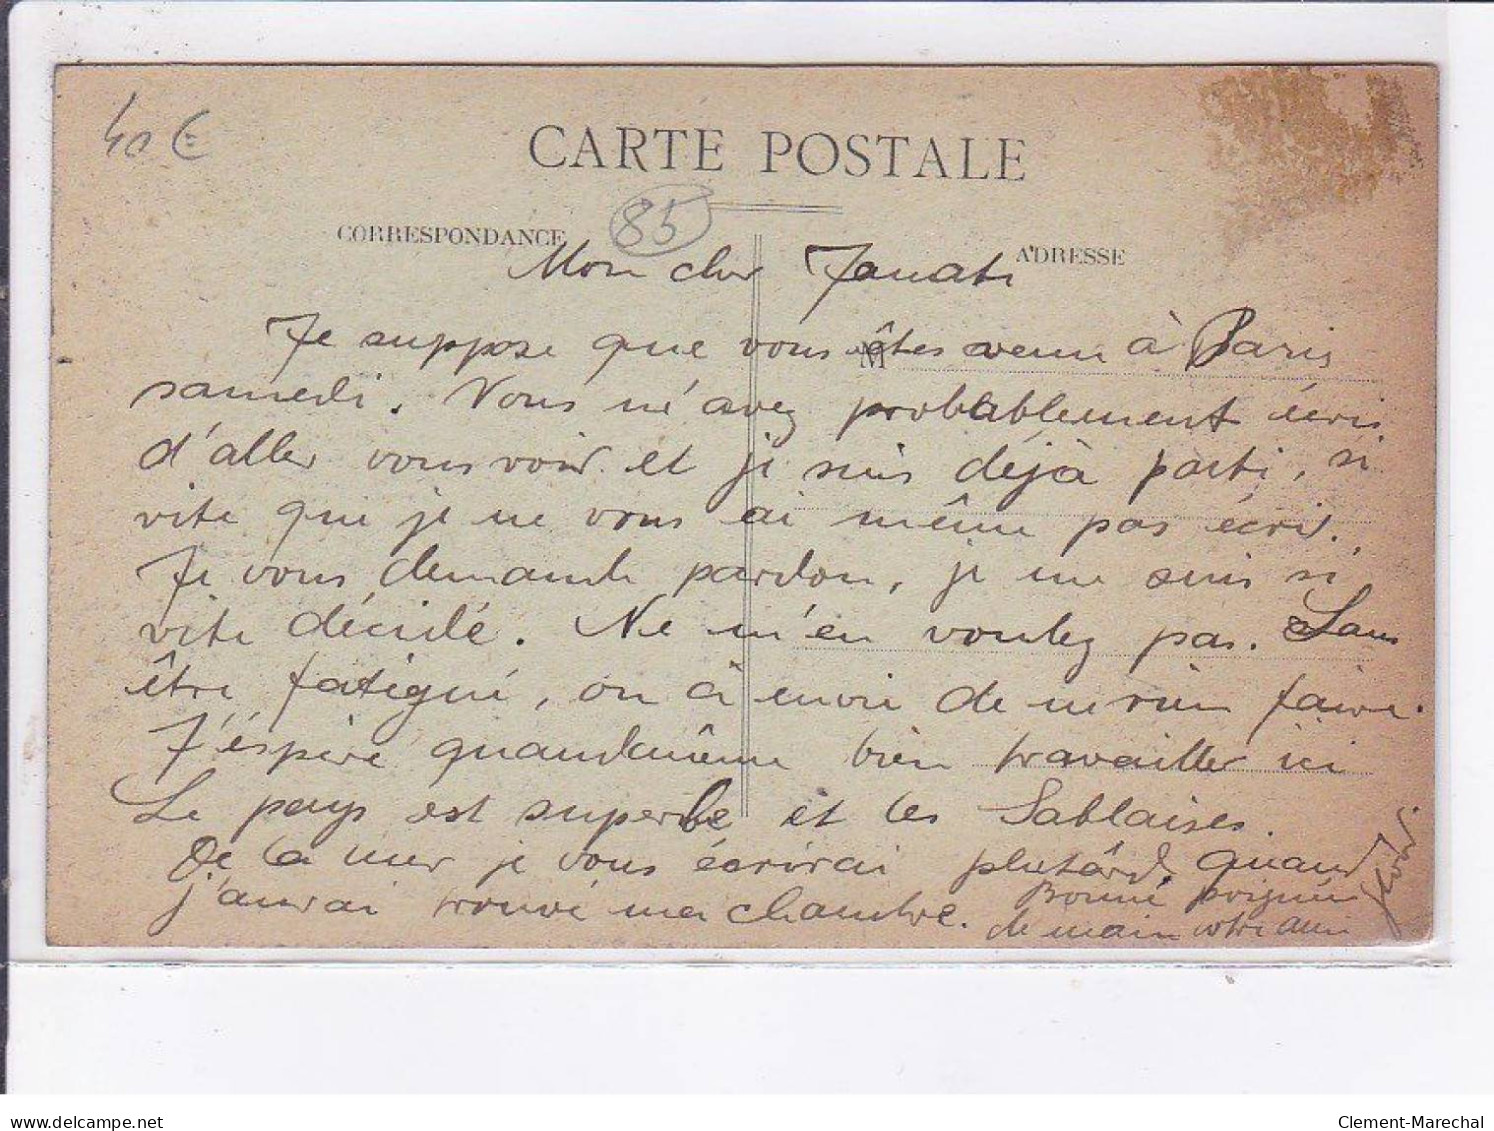 40 €
CARTE POSTALE
85
CORRESPONDANCE
ADRESSE
Mon cher
Je suppose que vous êtes venu à Paris
M
samedi. Vous m'avez probablement écris
d'aller vous voir et je suis déjà parti, si
vite que je ne vous ai même pas écrit.
Je vous demande pardon, je me suis si
vite décidé. Ne m'en voulez pas. Sans
être fatigué, on à envie de ne rien faire.
J'éspère quandmême bien travailler ici
Le pays est superbe et les Sablaises.
De la mer je vous écrirai plutârd quand
j'aurai trouvé ma chambre. Bonne poignée
de main votre ami
delcampe.net
Clement-Marechal